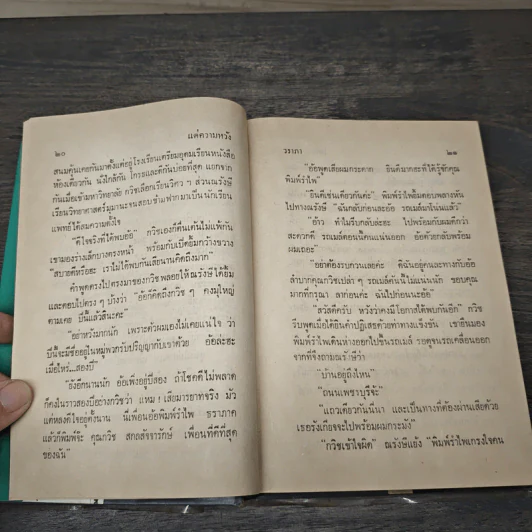 ๒๐
แด่ความหวัง
สนมคุ้นเคยกันมาตั้งแต่อยู่โรงเรียนเตรียมอุดมเรียนหนังสือ
ห้องเดียวกัน นั่งใกล้กัน โกรธและดีกันบ่อยที่สุด แยกจาก
กันเมื่อเข้ามหาวิทยาลัย กวิชเลือกเรียนวิศวะ ส่วนณรังษี
เรียนวิทยาศาสตร์มุมานะจนสอบข้ามฟากมาเป็นนักเรียน
แพทย์ได้สมความตั้งใจ
"ดีใจจริงที่ได้พบอ้อ" กวิชเองก็ตื่นเต้นไม่แพ้กัน
เขามองร่างเล็กบางตรงหน้า พร้อมกับเบิ่งยิ้มกว้างขวาง
"สบายดีหรือฮะ เราไม่ได้พบกันเสียนานคิดถึงมาก"
คำพูดตรงไปตรงมาของกวิชพลอยให้ณรังษีได้ยิ้ม
และตอบไปตรง ๆ บ้างว่า "อ้อก็คิดถึงกวิช ๆ คงมุใหญ่
ตามเคย ปีนี้แล้วสินะคะ"
"อย่าหวังมากนัก เพราะตัวผมเองไม่เคยแน่ใจ ว่า
ปีนี้จะมีชื่ออยู่ในหมู่พวกรับปริญญากับเขาด้วย อ้อล่ะฮะ
เมื่อไหร่...สองปี"
"ยังอีกนานนัก อ้อเพิ่งอยู่ปีสอง ถ้าโชคดีไม่พลาด
ก็คงในราวสองปีอย่างกวิชว่า แหม! เสียมารยาทจริง มัว
แต่หลงดีใจอยู่ตั้งนาน นี่เพื่อนอ้อพิมพ์รำไพ ธราภาค
แล้วก็พิมพ์จ๊ะ คุณกวิช สกลสัจจารักษ์ เพื่อนที่ดีที่สุด
ของฉัน"
วราภา
๒๑
"อ้อพูดเสียผมกระดาก ยินดีมากฮะที่ได้รู้จักคุณ
พิมพ์รำไพ"
"ยินดีเช่นเดียวกันค่ะ" พิมพ์รำไพยิ้มตอบพลางหัน
ไปทางณรังษี "ฉันกลับก่อนล่ะอ้อ รถเมล์มาโน่นแล้ว"
"อ้าว ทำไมรีบกลับล่ะฮะ ไปพร้อมกับผมดีกว่า
สะดวกดี รถเมล์ตอนนี้คนแน่นออก อ้อด้วยกลับพร้อม
ผมเถอะ"
"อย่าต้องรบกวนเลยค่ะ ดิฉันอยู่คนละทางกับอ้อ
ลำบากคุณกวิชเปล่า ๆ รถเมล์คันนี้ไม่แน่นนัก ขอบคุณ
มากที่กรุณา ลาก่อนค่ะ ฉันไปก่อนนะอ้อ"
"สวัสดีครับ หวังว่าคงมีโอกาสได้พบกันอีก" กวิช
รีบพูดเมื่อได้ยินคำปฏิเสธด้วยท่าทางแข็งขัน เขายืนมอง
พิมพ์รำไพเดินห่างออกไปขึ้นรถเมล์ รอดูจนรถเคลื่อนออก
จากที่จึงถามณรังษีว่า
"บ้านอยู่ถึงไหน"
"ถนนเพชรบุรีจ้ะ"
"แถวเดียวกันนี่นา และเป็นทางที่ต้องผ่านเสียด้วย
เธอรังเกียจจะไปพร้อมผมกระมัง"
"กวิชเข้าใจผิด" ณรังษีแย้ง "พิมพ์รำไพเกรงใจคน